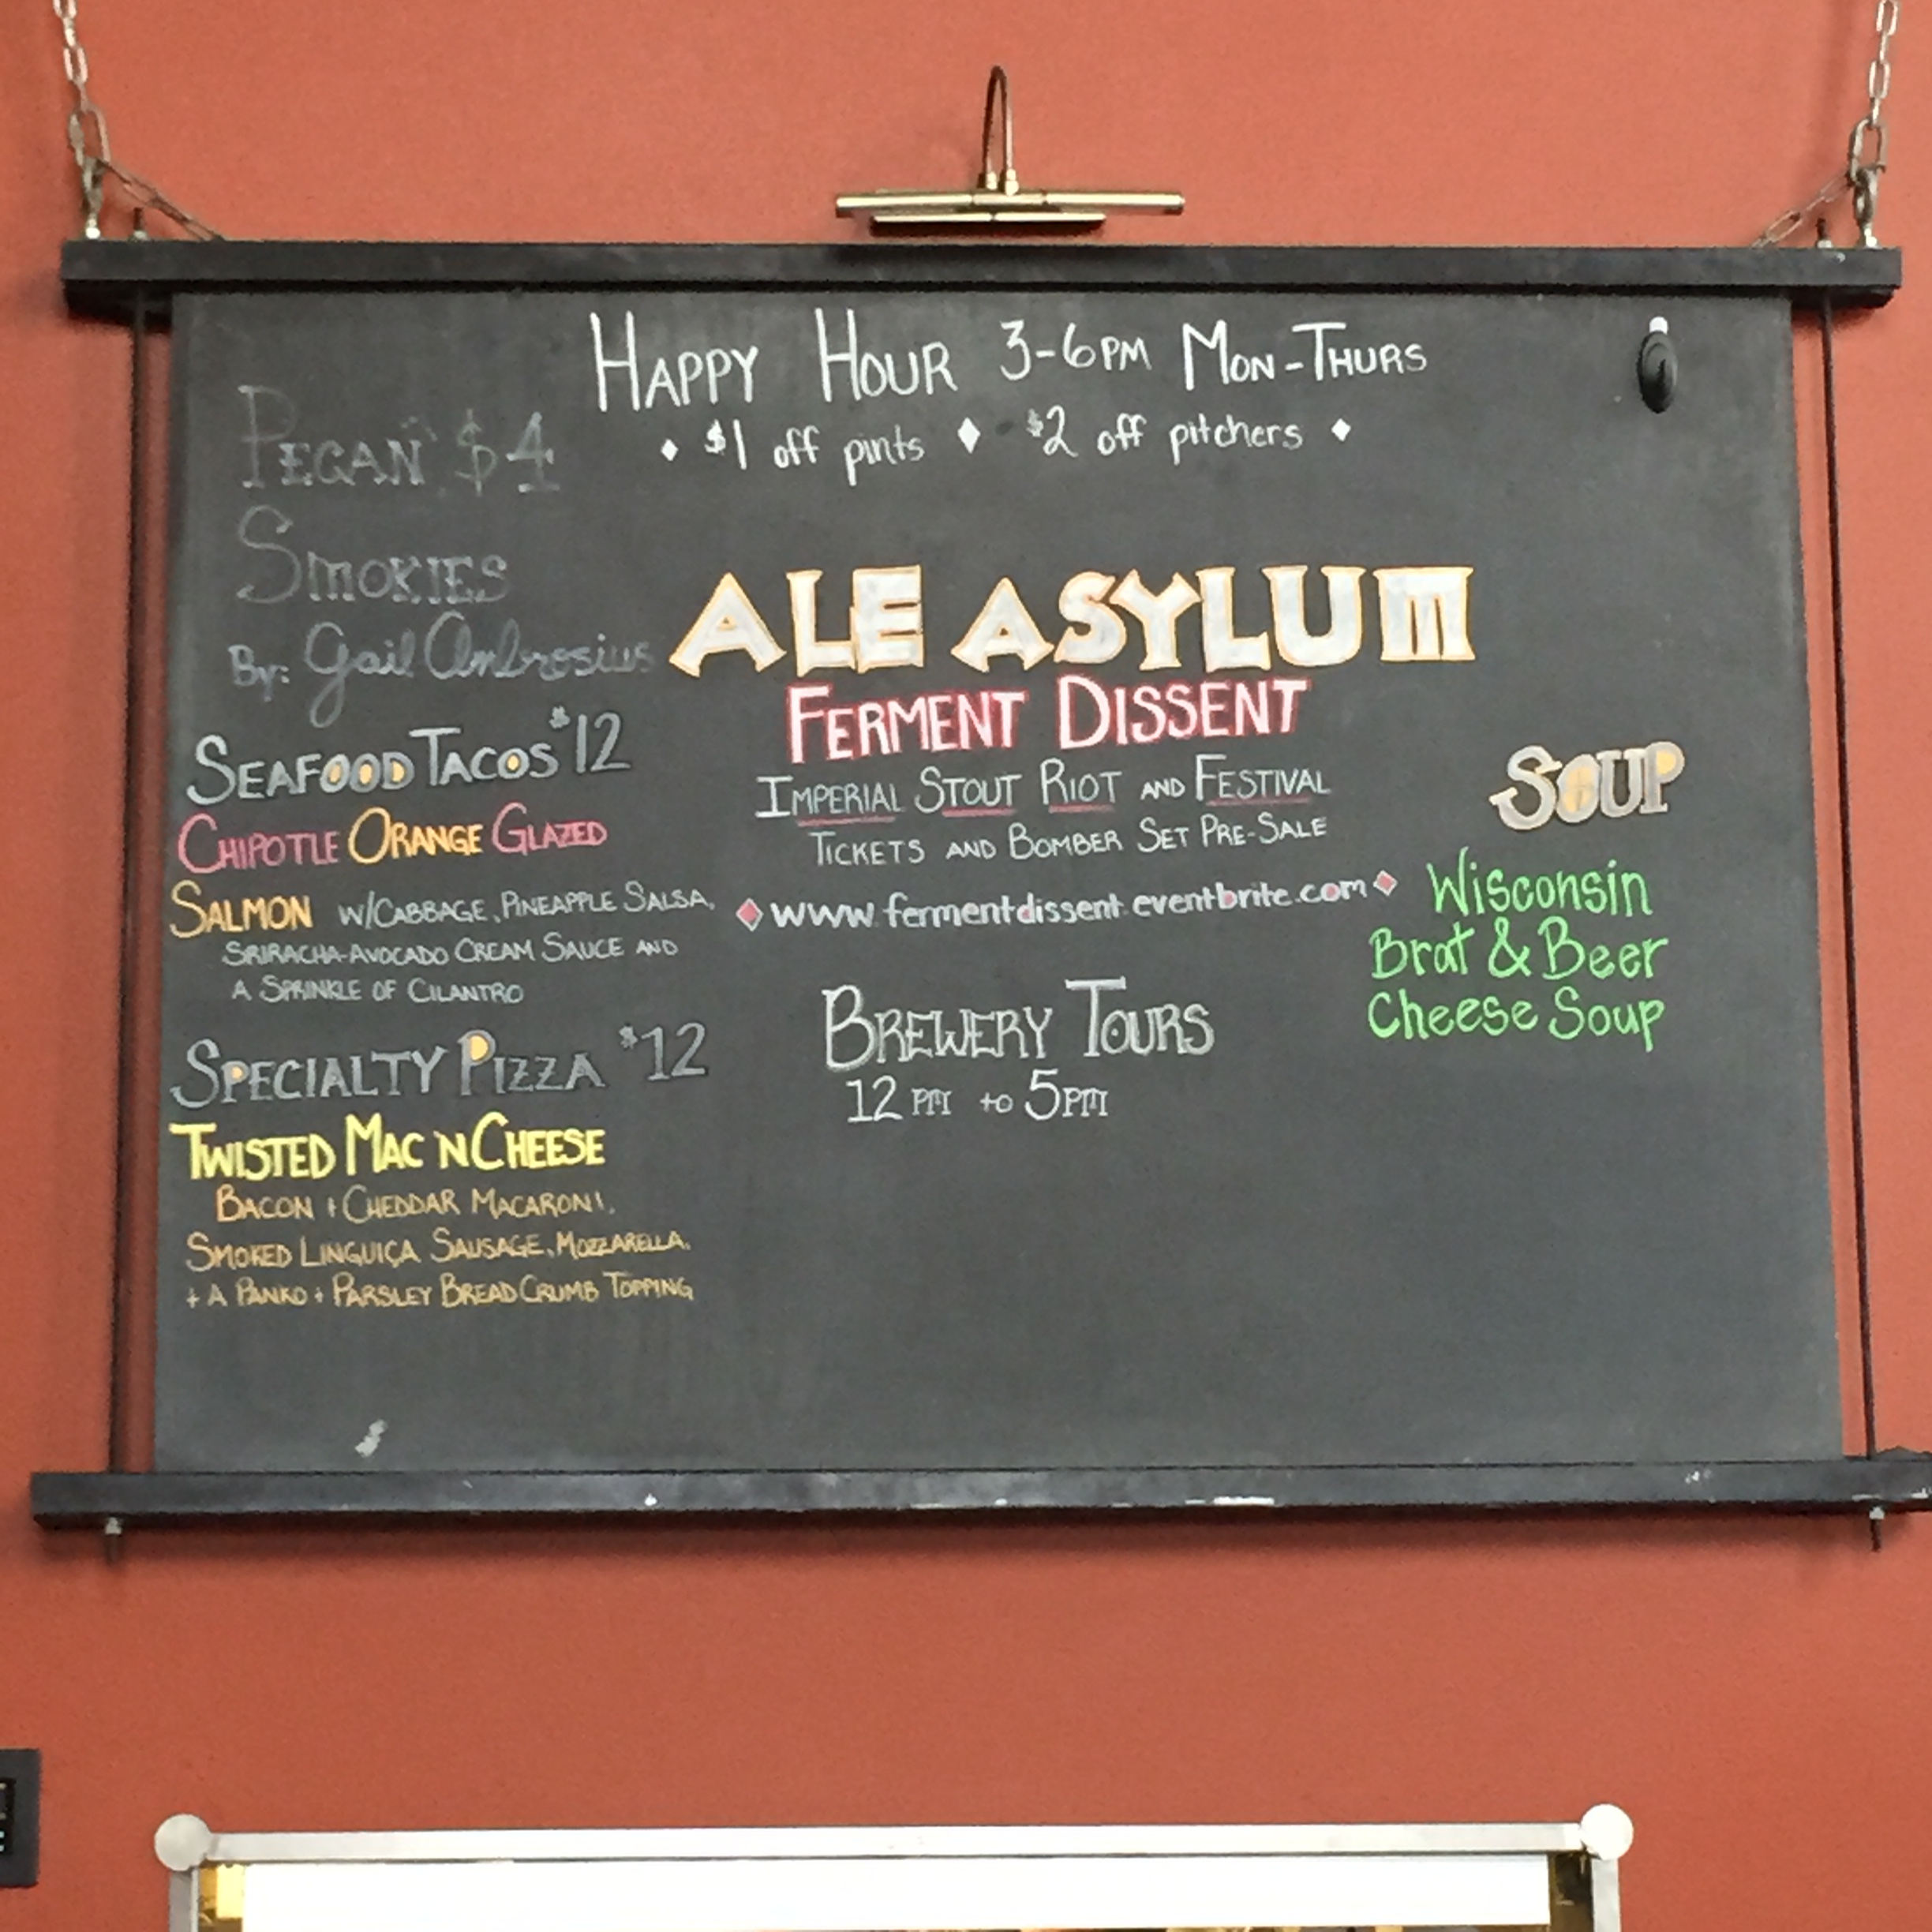 HAPPY HOUR 3-6PM MON-THURS
$1 off pints ♦ $2 off pitchers
PECAN $4
SMOKIES
By: Gail Ambrosius
SEAFOOD TACOS $12
CHIPOTLE ORANGE GLAZED
SALMON W/CABBAGE, PINEAPPLE SALSA,
SRIRACHA-AVOCADO CREAM SAUCE AND
A SPRINKLE OF CILANTRO
SPECIALTY PIZZA $12
TWISTED MAC 'N CHEESE
BACON + CHEDDAR MACARONI,
SMOKED LINGUIÇA SAUSAGE, MOZZARELLA,
+ A PANKO + PARSLEY BREAD CRUMB TOPPING
ALE ASYLUM
FERMENT DISSENT
IMPERIAL STOUT RIOT AND FESTIVAL
TICKETS AND BOMBER SET PRE-SALE
♦ www.fermentdissent.eventbrite.com ♦
BREWERY TOURS
12 PM to 5PM
SOUP
Wisconsin
Brat & Beer
Cheese Soup